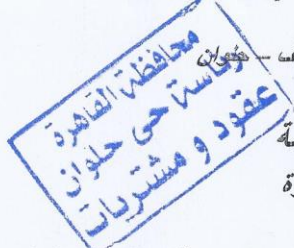 – حلوان
محافظة القاهرة
رئاسة حى حلوان
عقود و مشتريات